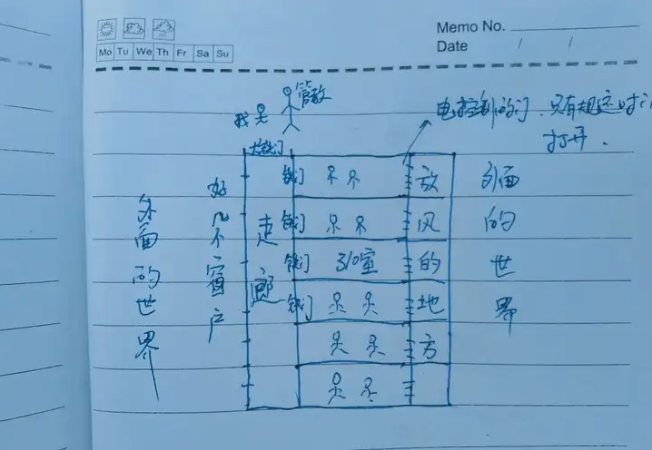 Memo No.
Date / /
Mo Tu We Th Fr Sa Su
管教
我
电控制的门.只有规定时
打开.
大铁门
外面的世界
好几个窗户
走廊
铁门
铁门
铁门
铁门
310室
放风的地方
外面的世界